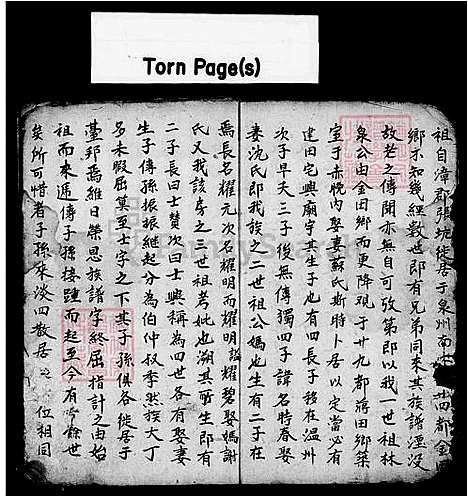 Torn Page(s)
祖自漳郡張坑徙居于泉州南 四都金
鄉不知幾經數世即有兄弟同來其族譜湮沒
故老之傳聞亦無自可攷第即以我一世祖林
泉公由金田鄉而更降覌于廿九都蔣田鄉築
室于赤悅內娶妻蘇氏斯時卜居以定當必有
建田宅興廟宇其生子也有四長子移在溫州
次子早夭三子後無傳獨四子諱名時春娶
妻沈氏即我族之二世祖公媽也生有二子在
焉長名耀元次名耀明而耀明謚耀碧娶媽謝
氏又我該房之三世祖考妣也溯其所生即有
二子長曰士贊次曰士興稱為四世各有娶妻
生子傳孫振振継起分為伯仲叔季然族大丁
多未暇屈莫至士字之下其子孫俱各徙居于
臺邦焉維日榮思族譜字終屈指計之由始
祖而來遞傳子孫接踵而起至今有 餘世
矣所可惜者子孫衆淡四散居 位相同